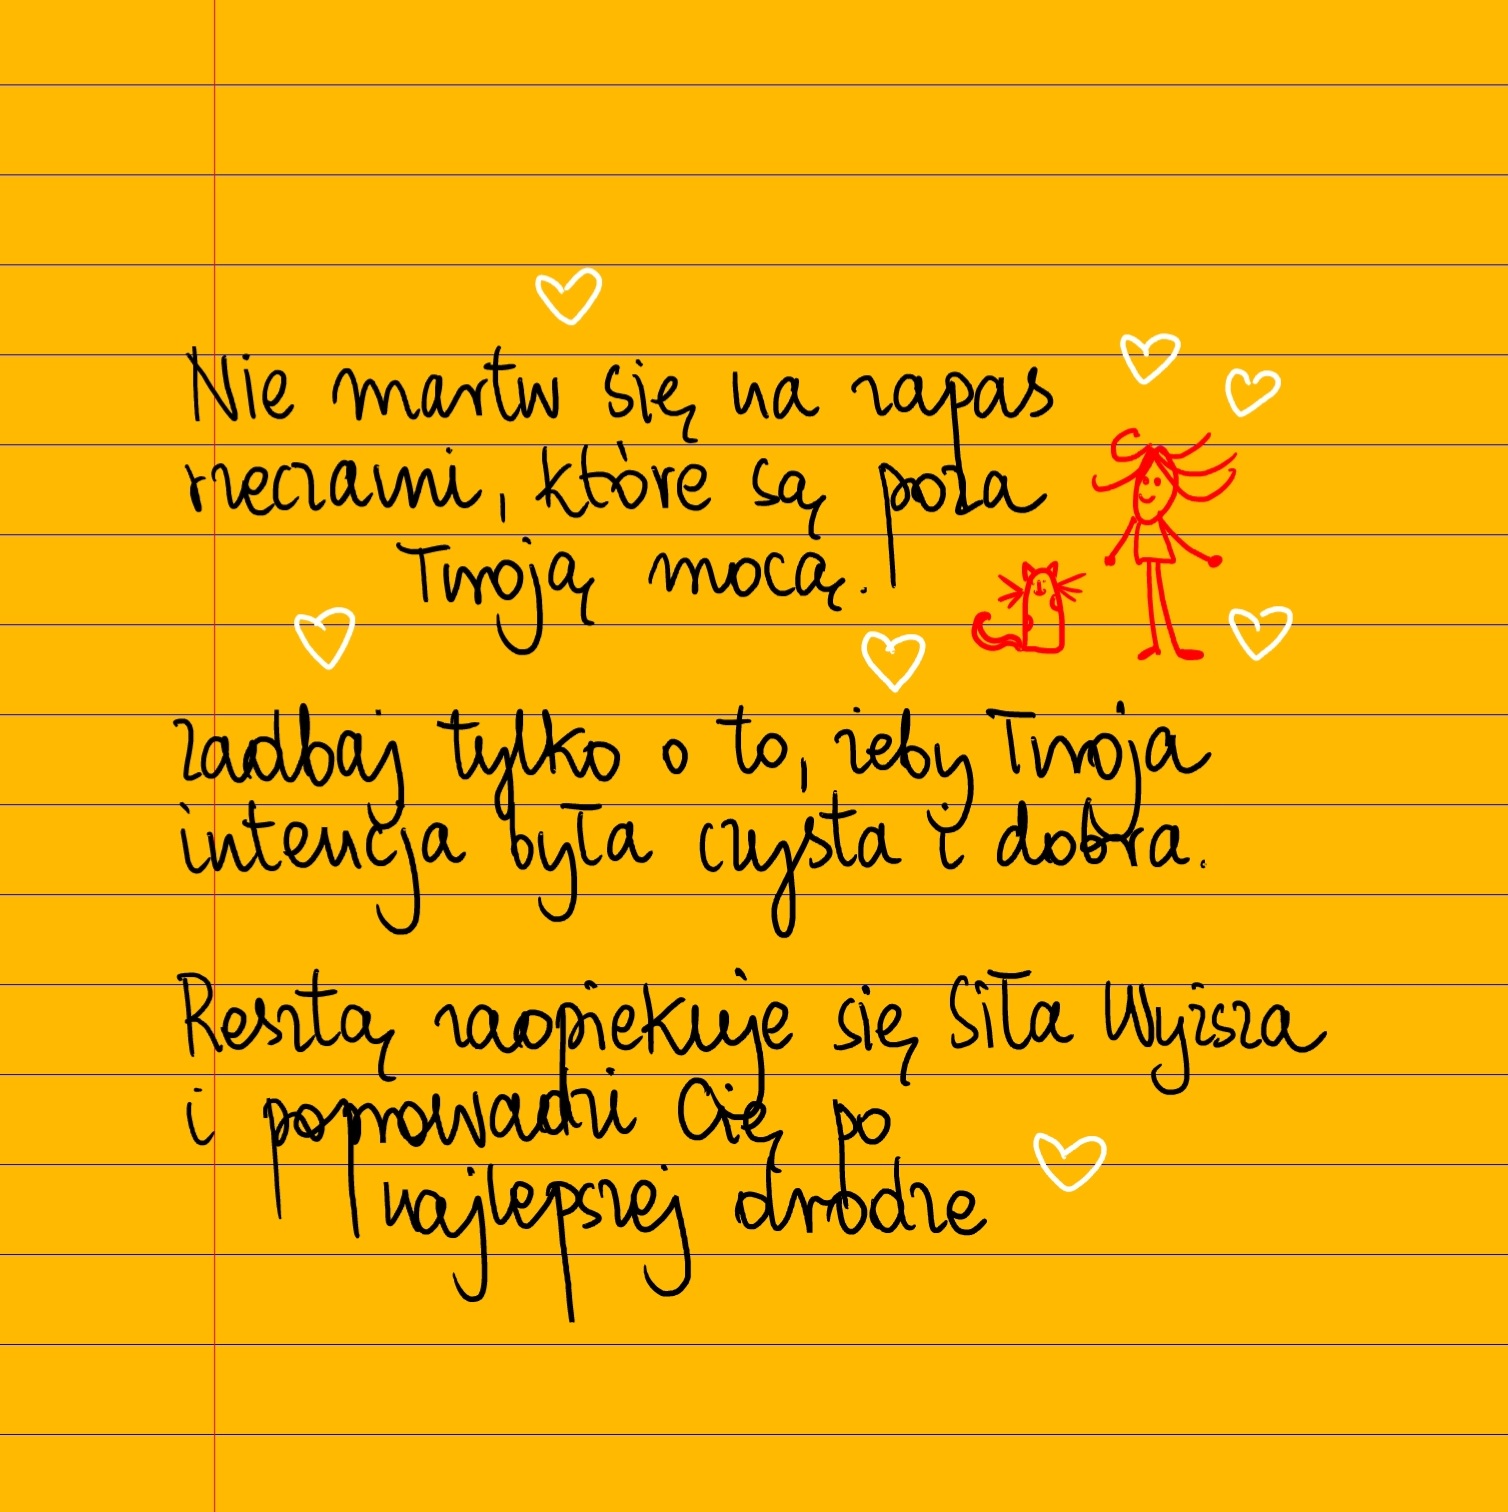 Nie martw się na zapas
rzeczami, które są poza
Twoją mocą.
zadbaj tylko o to, żeby Twoja
intencja była czysta i dobra.
Resztą zaopiekuje się Siła Wyższa
i poprowadzi Cię po
najlepszej drodze